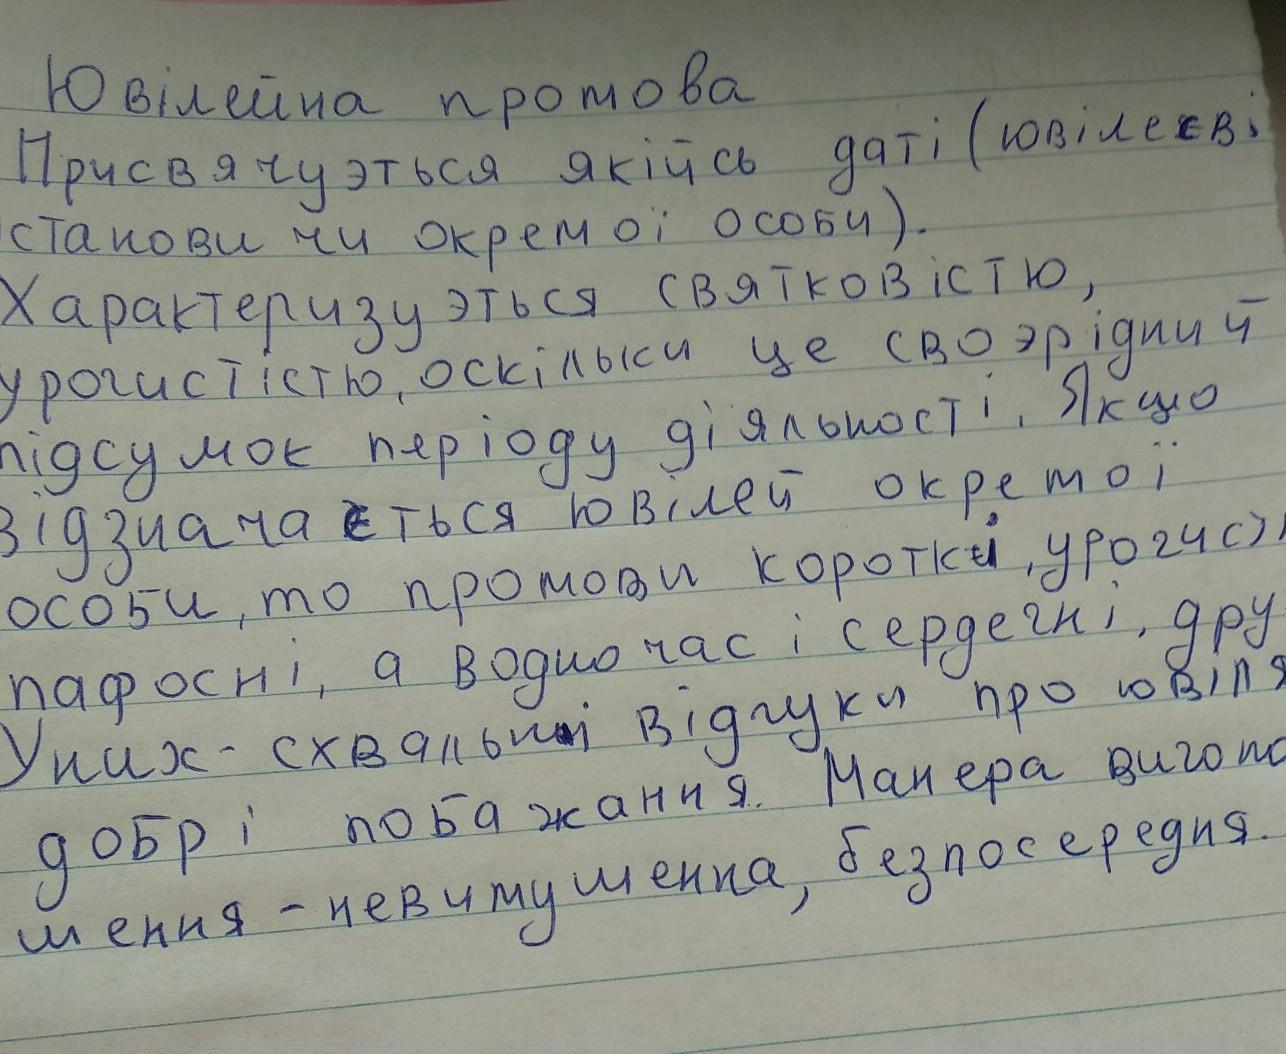 Ювілейна промова
Присвячуэться якійсь даті (ювілеєві
станови чи окремої особи).
Характеризуэться святковістю,
урочистістю, оскільки це своэрідний
підсумок періоду діяльності. Якщо
відзначається ювілей окремої
особи, то промови короткі, урочисті
пафосні, а водночас і сердечні, дру
У них - схвальні відгуки про ювіля
добрі побажання. Манера виголо
шення - невимушенна, безпосередня.